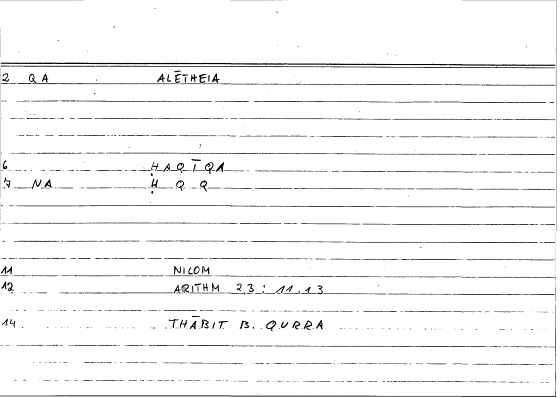 2 QA ALĒTHEIA
6 ḤAQĪQA
7 NA Ḥ Q Q
11 NICOM
12 ARITHM 23 : 11.13
14 THĀBIT B. QURRA